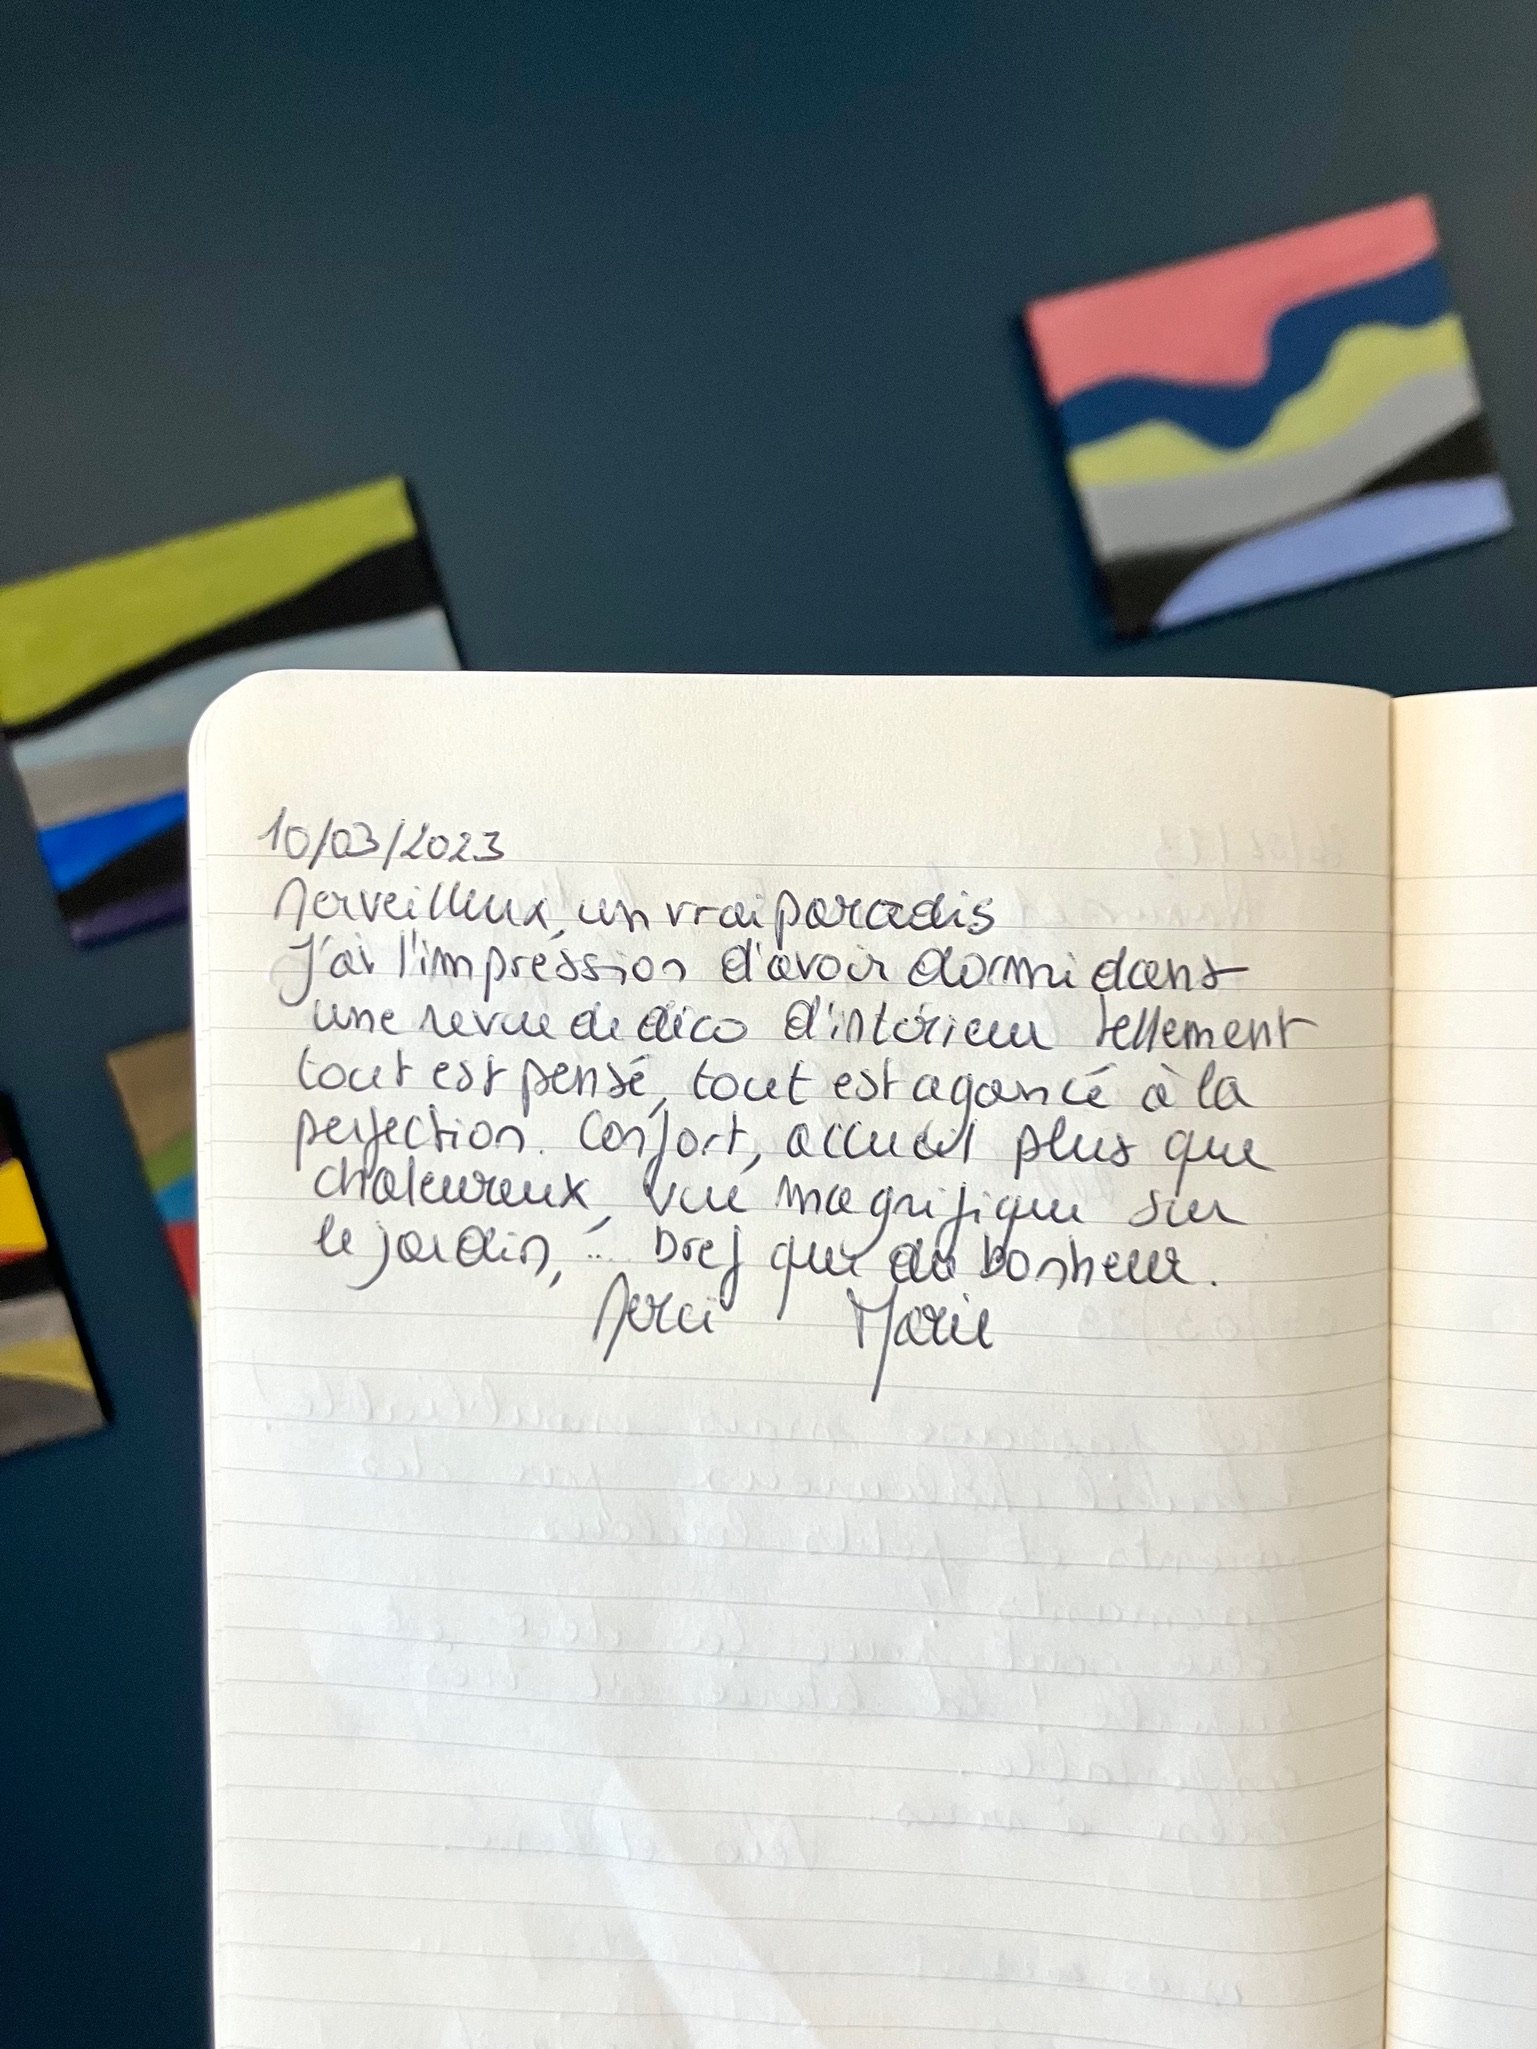 10/03/2023
Merveilleux, un vrai paradis
J'ai l'impréssion d'avoir dormi dans
une revue de déco d'intérieur tellement
tout est pensé, tout est agancé à la
perfection. Confort, accueil plus que
chaleureux, vue magnifique sur
le jardin, ... bref que du bonheur.
Merci Marie